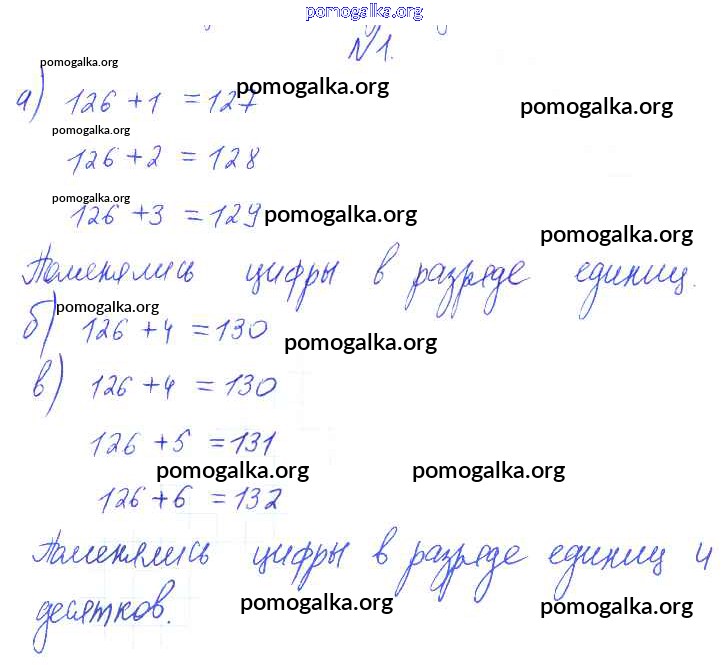 pomogalka.org
№1.
pomogalka.org
а) 126 + 1 = 127 pomogalka.org
pomogalka.org
pomogalka.org
126 + 2 = 128
pomogalka.org
126 + 3 = 129 pomogalka.org
pomogalka.org
Поменялись цифры в разряде единиц.
pomogalka.org
б) 126 + 4 = 130
pomogalka.org
в) 126 + 4 = 130
126 + 5 = 131
pomogalka.org pomogalka.org
126 + 6 = 132
Поменялись цифры в разряде единиц и
десятков. pomogalka.org pomogalka.org